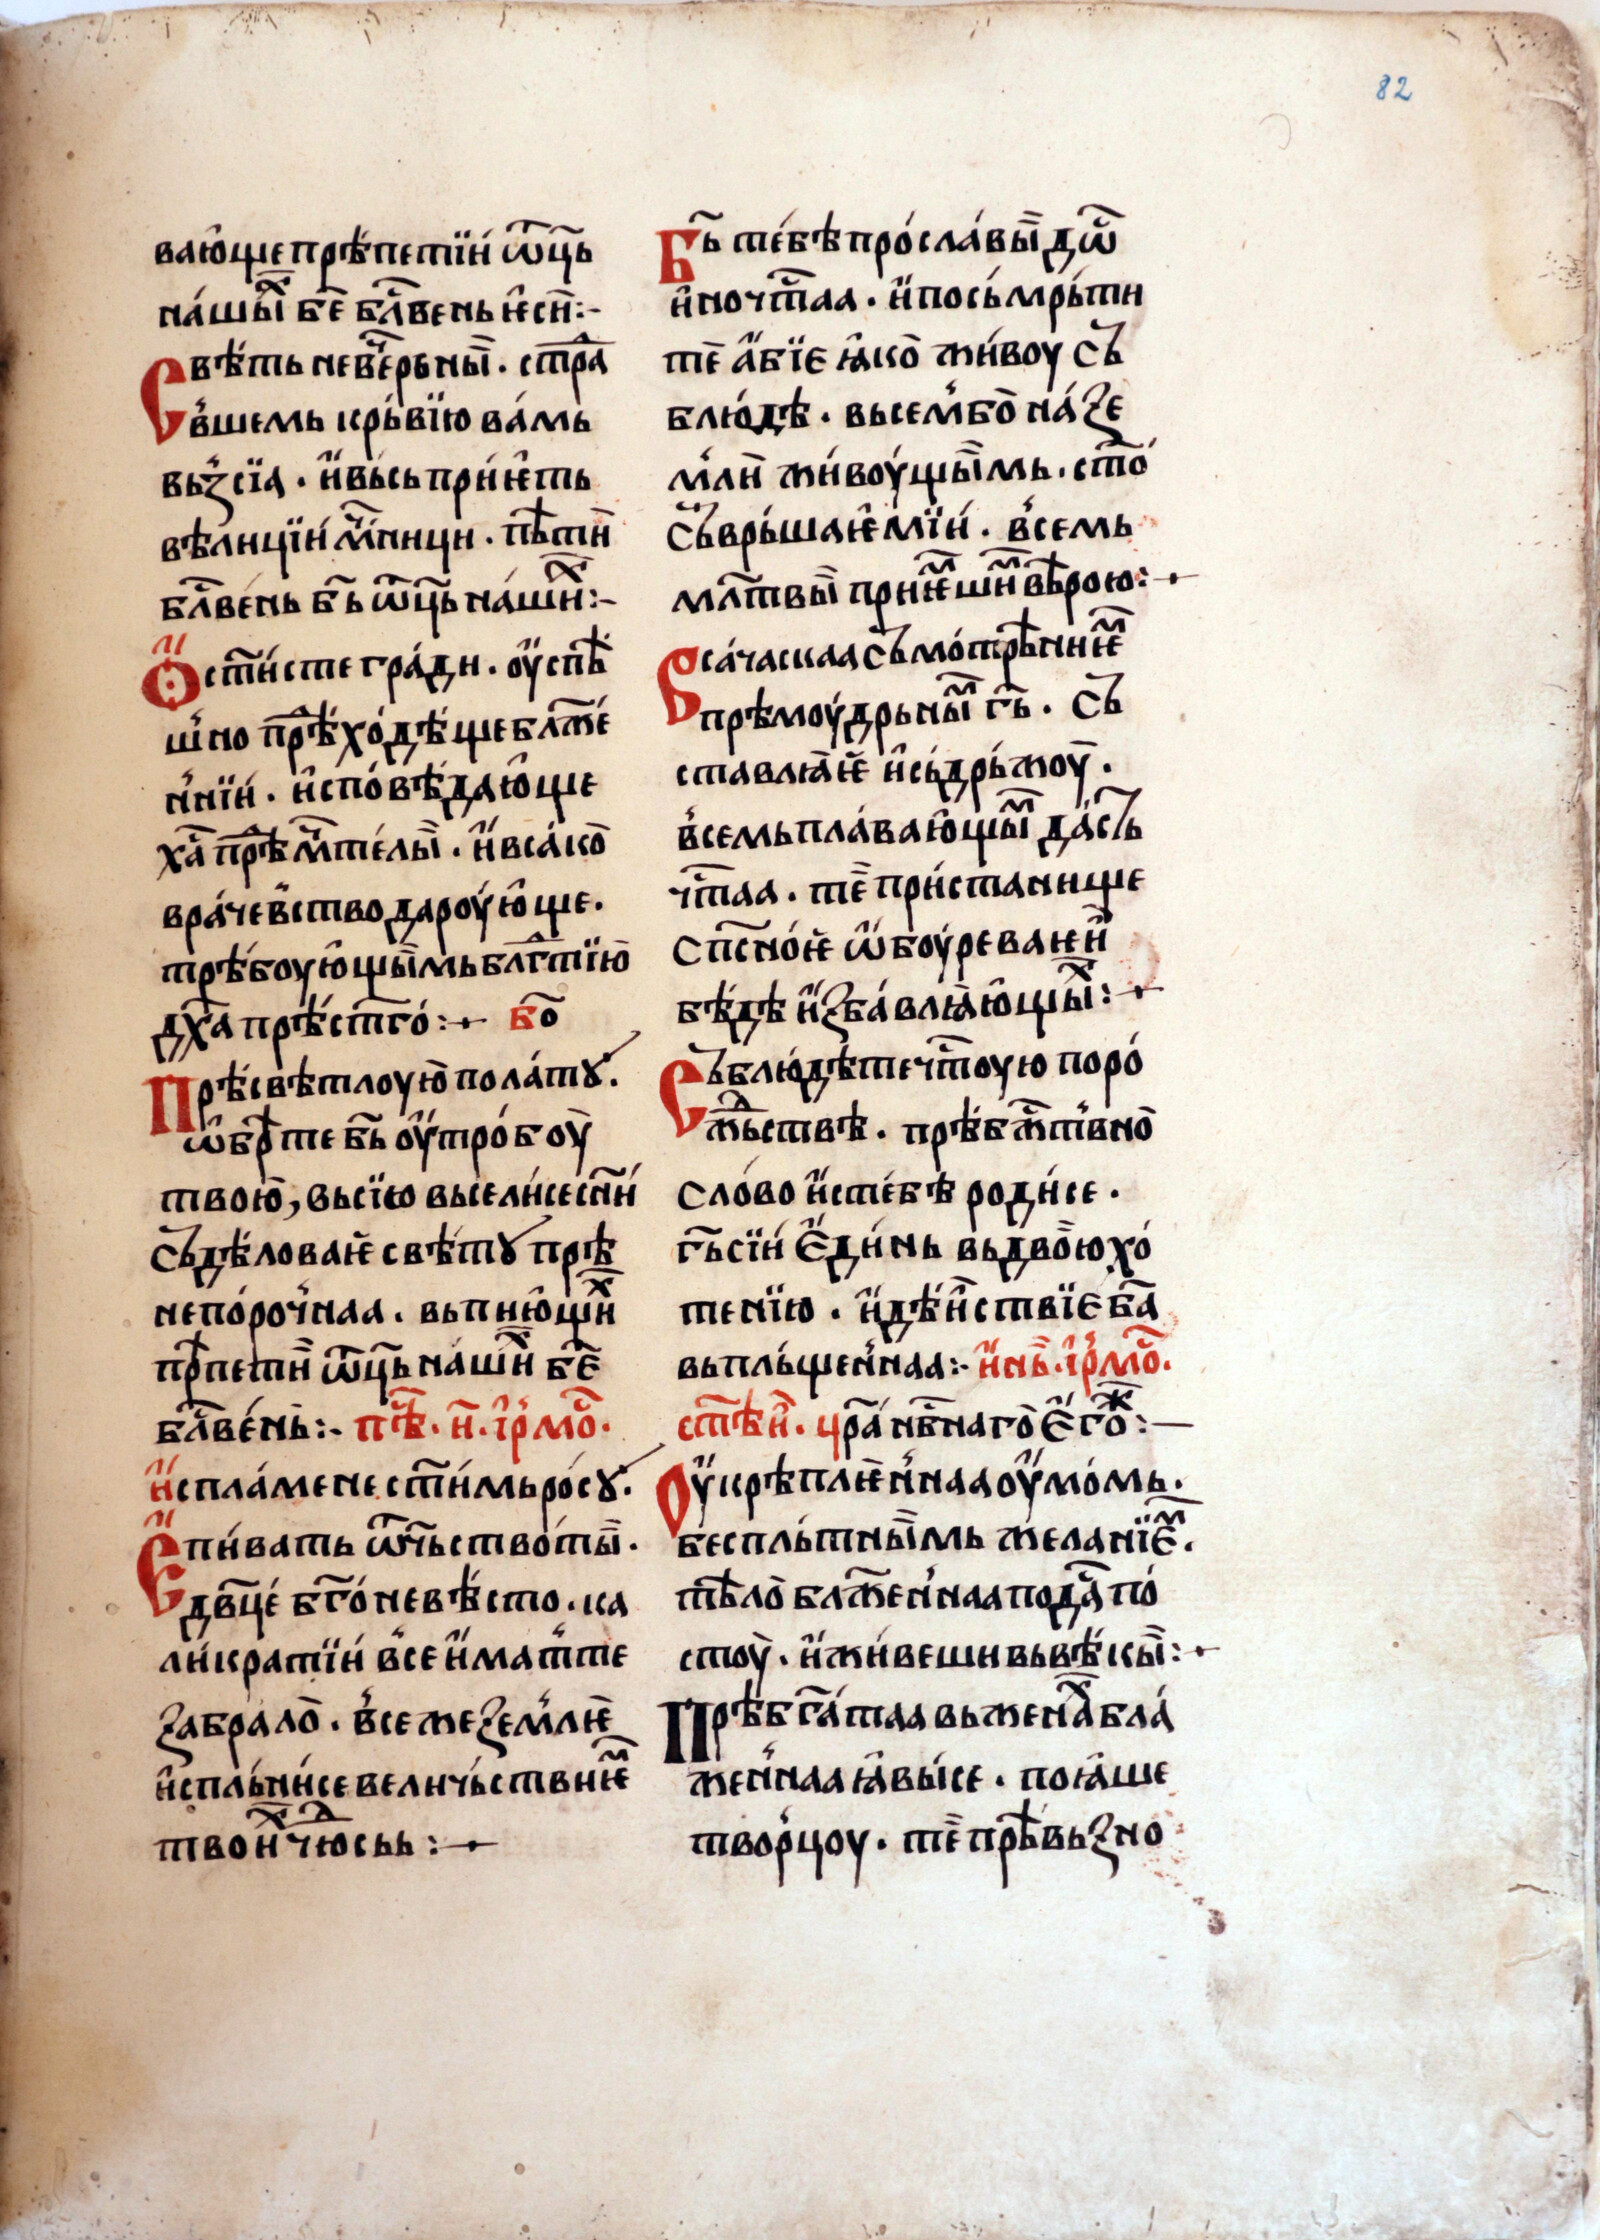 82
ваю̑ще прѣ́петїи́ ѿц҃ь
на́шыⷯ бе҃ блⷭ҇вень ѥ҆сы̀:-
Свѣть невⷱ҇ерьны̏. стрⷣа
в̾шемь крь́вїю ва́мь
вьз̾сїа. и҆ вь́сь при́ѥ҆ть
вѣлицїи́ мⷱ҇пици. пѣⷭ҇ти̏
блⷭ҇ве́нь б҃ь ѿц҃ь на́шиⷯ:-
Ѻ҆ст҃и́сте гра́ди. ѹ҆спѣⷲ҇
ш̾но прⷣѣ́хо́дѣ́ще блж҃е́
н̾нїи́. и҆спо́вѣ́даю̑ще
хⷭ҇а прⷣѣ мⷱ҇те́лы̏. и҆ вса́ко̀
вра́чев̾ство дароу́ю̑ще.
трѣ́боую̑щы̏мь блгⷣтїю̀
дх҃а прѣ́ст҃го́:⁓ бо҃
Прѣ́свѣтлоую̀ пола́тꙋ.
ѡ҆брⷮѣте б҃ь оу҆тро́боу̀
твою̀, вьсїю вьсели́се сн҃и́
съдѣ́лованѥ̀ свѣ́тꙋ прѣ
непо́роч̾наа. вьпию̑щиⷯ
прⷣѣпети̏ ѿц҃ь на́шиⷯ бе҃
блⷭ҇ве́нь̀:- пⷭ҇ѣ. и҃. і҆р̾моⷭ.
И҆с пла́мене ст҃и́мь ро́сꙋ.
Е҆пи́вать ѿч҃ьство́ты̏.
двц҃е́ бг҃о́невѣ́сто. ка
ли́кратїи́ в̾се и҆мат̾ те
забрало̀. в̾се же зем̾лѥ̀
и҆спль́ни́се вели́чь́ствиѥⷨ
твоиⷯ чюⷣсьь :⁓
Б҃ь те́бѣ про́сла́вы̏ дѡⷭ҇
и҆но чтⷭ҇аа. и҆ по сь́мрь́ти
те̏ а҆бїє ꙗ҆ко̀ жи́воу съ
блю́дѣ. вьсем̾ бо̀ на́ зе
м̾ли̏ жи́воу́щы̏мь. ст҃о́
съврь́шаѥ҆мїи́. в̾семь
млт҃вы̏ приѥⷨшиⷨ вѣ́рою:⁓
Вса́часкаа съмо́трѣ́ниѥⷨ
прѣмоу́дрьны̏ⷨ г҃ь. съ
ставлꙗ҆ѥ̀ и҆ сь́дрь́жоу̏.
в̾семь пла́ваю̑щы̏ⷨ да́сть
чтⷭ҇аа. те̏ при́станище
спⷭ҇но́ѥ̀ ѡ҆ боу́реванѥи̏
бѣ́дѣ и҆зба́влꙗ҆ю̑щы̏ⷯ:⁓
Съблю́дѣ те чтⷭ҇оую поро́
жⷣьствѣ. прѣ́бжⷭ҇т̾вно̀
сло́во и҆с те́бѣ роди́се.
г҃ь сїи́ Е҆ди́нь вь дво̏ю хо́
тенїю. и҆ дѣ́и҆ствїє б҃а
вьпль́щен̾наа:- и҆нь̀. і҆р̾моⷭ.
стѣи҃. цр҃а нбⷭ҇наго̀ Е҆гоⷤ:—
Оу҆крѣплѥн̾наа оу҆мо́мь.
беспль́тны̏мь жеⷧ҇анїєⷨ.
тѣло̀ блж҃ен̾наа подаⷭ҇ по́
стоу̀. и҆ жи́веши вь вѣ́кы̏:⁓
Прѣбга҃таа вь жена́ⷯ бла́
жен̾наа ꙗ҆вы́се. поꙗ҆ше
твор̾цоу. те̏ прѣⷭ҇вьзно